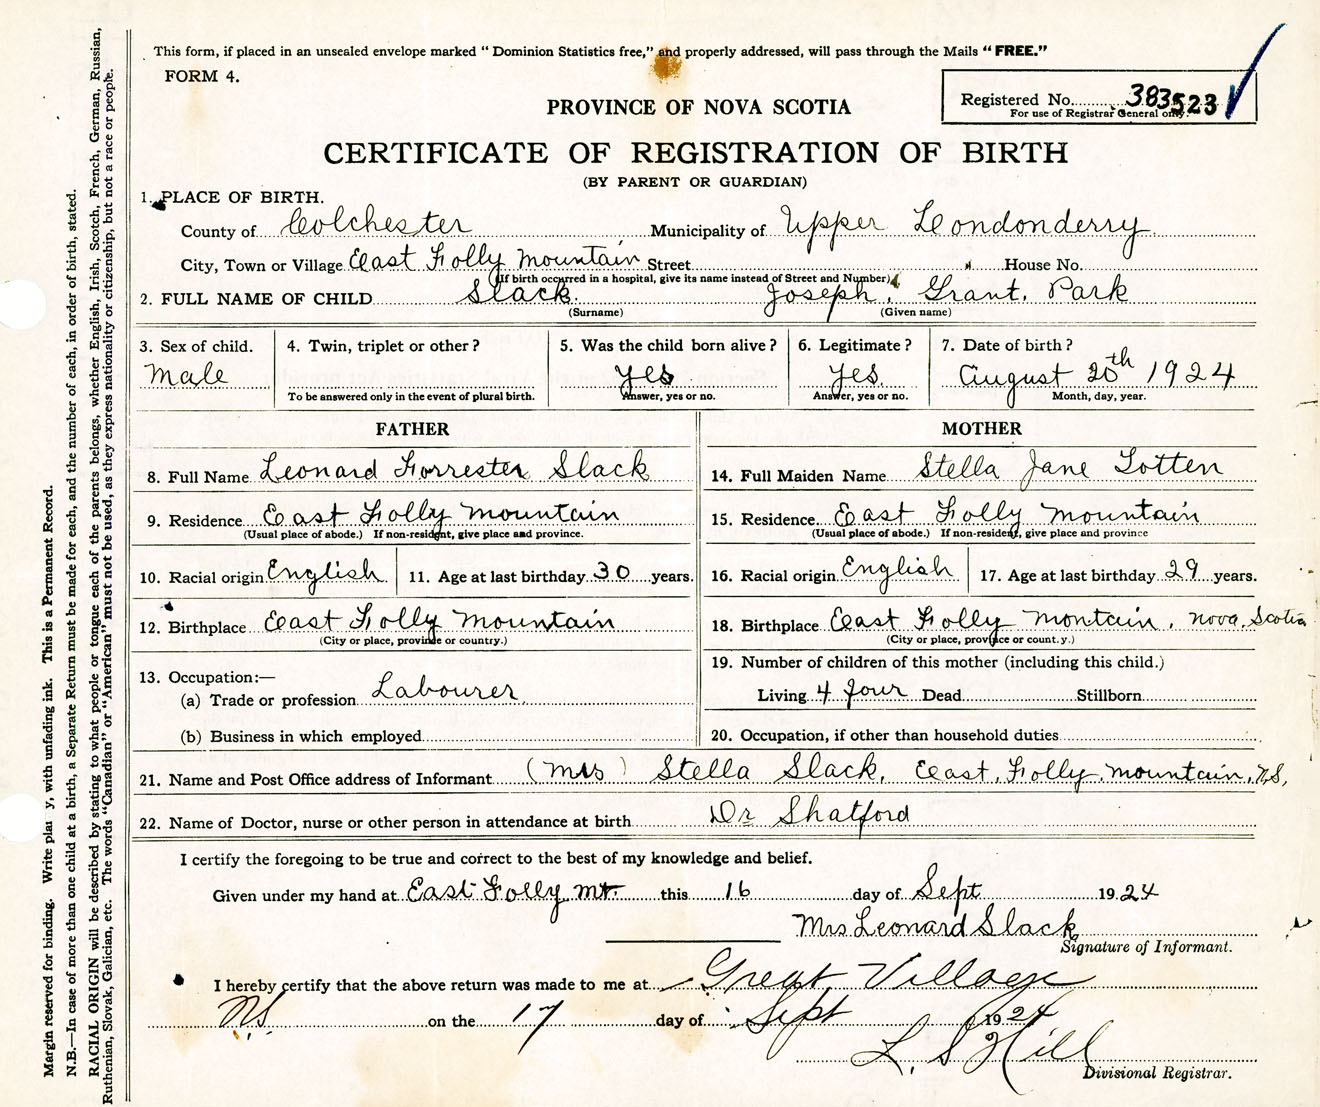 This form, if placed in an unsealed envelope marked “ Dominion Statistics free,” and properly addressed, will pass through the Mails “ FREE.”
FORM 4.
Registered No. 383523
For use of Registrar General only.
PROVINCE OF NOVA SCOTIA
CERTIFICATE OF REGISTRATION OF BIRTH
(BY PARENT OR GUARDIAN)
1. PLACE OF BIRTH.
County of Colchester Municipality of Upper Londonderry
City, Town or Village East Folly Mountain Street House No.
(If birth occurred in a hospital, give its name instead of Street and Number)
2. FULL NAME OF CHILD Slack. Joseph, Grant, Park
(Surname) (Given name)
3. Sex of child. 4. Twin, triplet or other ? 5. Was the child born alive ? 6. Legitimate ? 7. Date of birth ?
Male yes yes. August 20th 1924
To be answered only in the event of plural birth. Answer, yes or no. Answer, yes or no. Month, day, year.
FATHER
8. Full Name Leonard Forrester Slack
9. Residence East Folly Mountain
(Usual place of abode.) If non-resident, give place and province.
10. Racial origin English 11. Age at last birthday 30 years.
12. Birthplace East Folly Mountain
(City or place, province or country.)
13. Occupation:—
(a) Trade or profession Labourer
(b) Business in which employed
MOTHER
14. Full Maiden Name Stella Jane Totten
15. Residence East Folly Mountain
(Usual place of abode.) If non-resident, give place and province
16. Racial origin English 17. Age at last birthday 29 years.
18. Birthplace East Folly Montain, Nova Scotia
(City or place, province or count.y.)
19. Number of children of this mother (including this child.)
Living 4 four Dead Stillborn
20. Occupation, if other than household duties
21. Name and Post Office address of Informant (Mrs) Stella Slack, East Folly Mountain, N.S,
22. Name of Doctor, nurse or other person in attendance at birth Dr Shatford
I certify the foregoing to be true and correct to the best of my knowledge and belief.
Given under my hand at East Folly Mt. this 16 day of Sept 1924
Mrs Leonard Slack
Signature of Informant.
I hereby certify that the above return was made to me at Great Village
N.S. on the 17 day of Sept 1924
L. S Hill
Divisional Registrar.
Margin reserved for binding. Write plai y, with unfading ink. This is a Permanent Record.
N.B.—In case of more than one child at a birth, a Separate Return must be made for each, and the number of each, in order of birth, stated.
RACIAL ORIGIN will be described by stating to what people or tongue each of the parents belongs, whether English, Irish, Scotch, French, German, Russian,
Ruthenian, Slovak, Galician, etc. The words “Canadian” or “American” must not be used, as they express nationality or citizenship, but not a race or people.